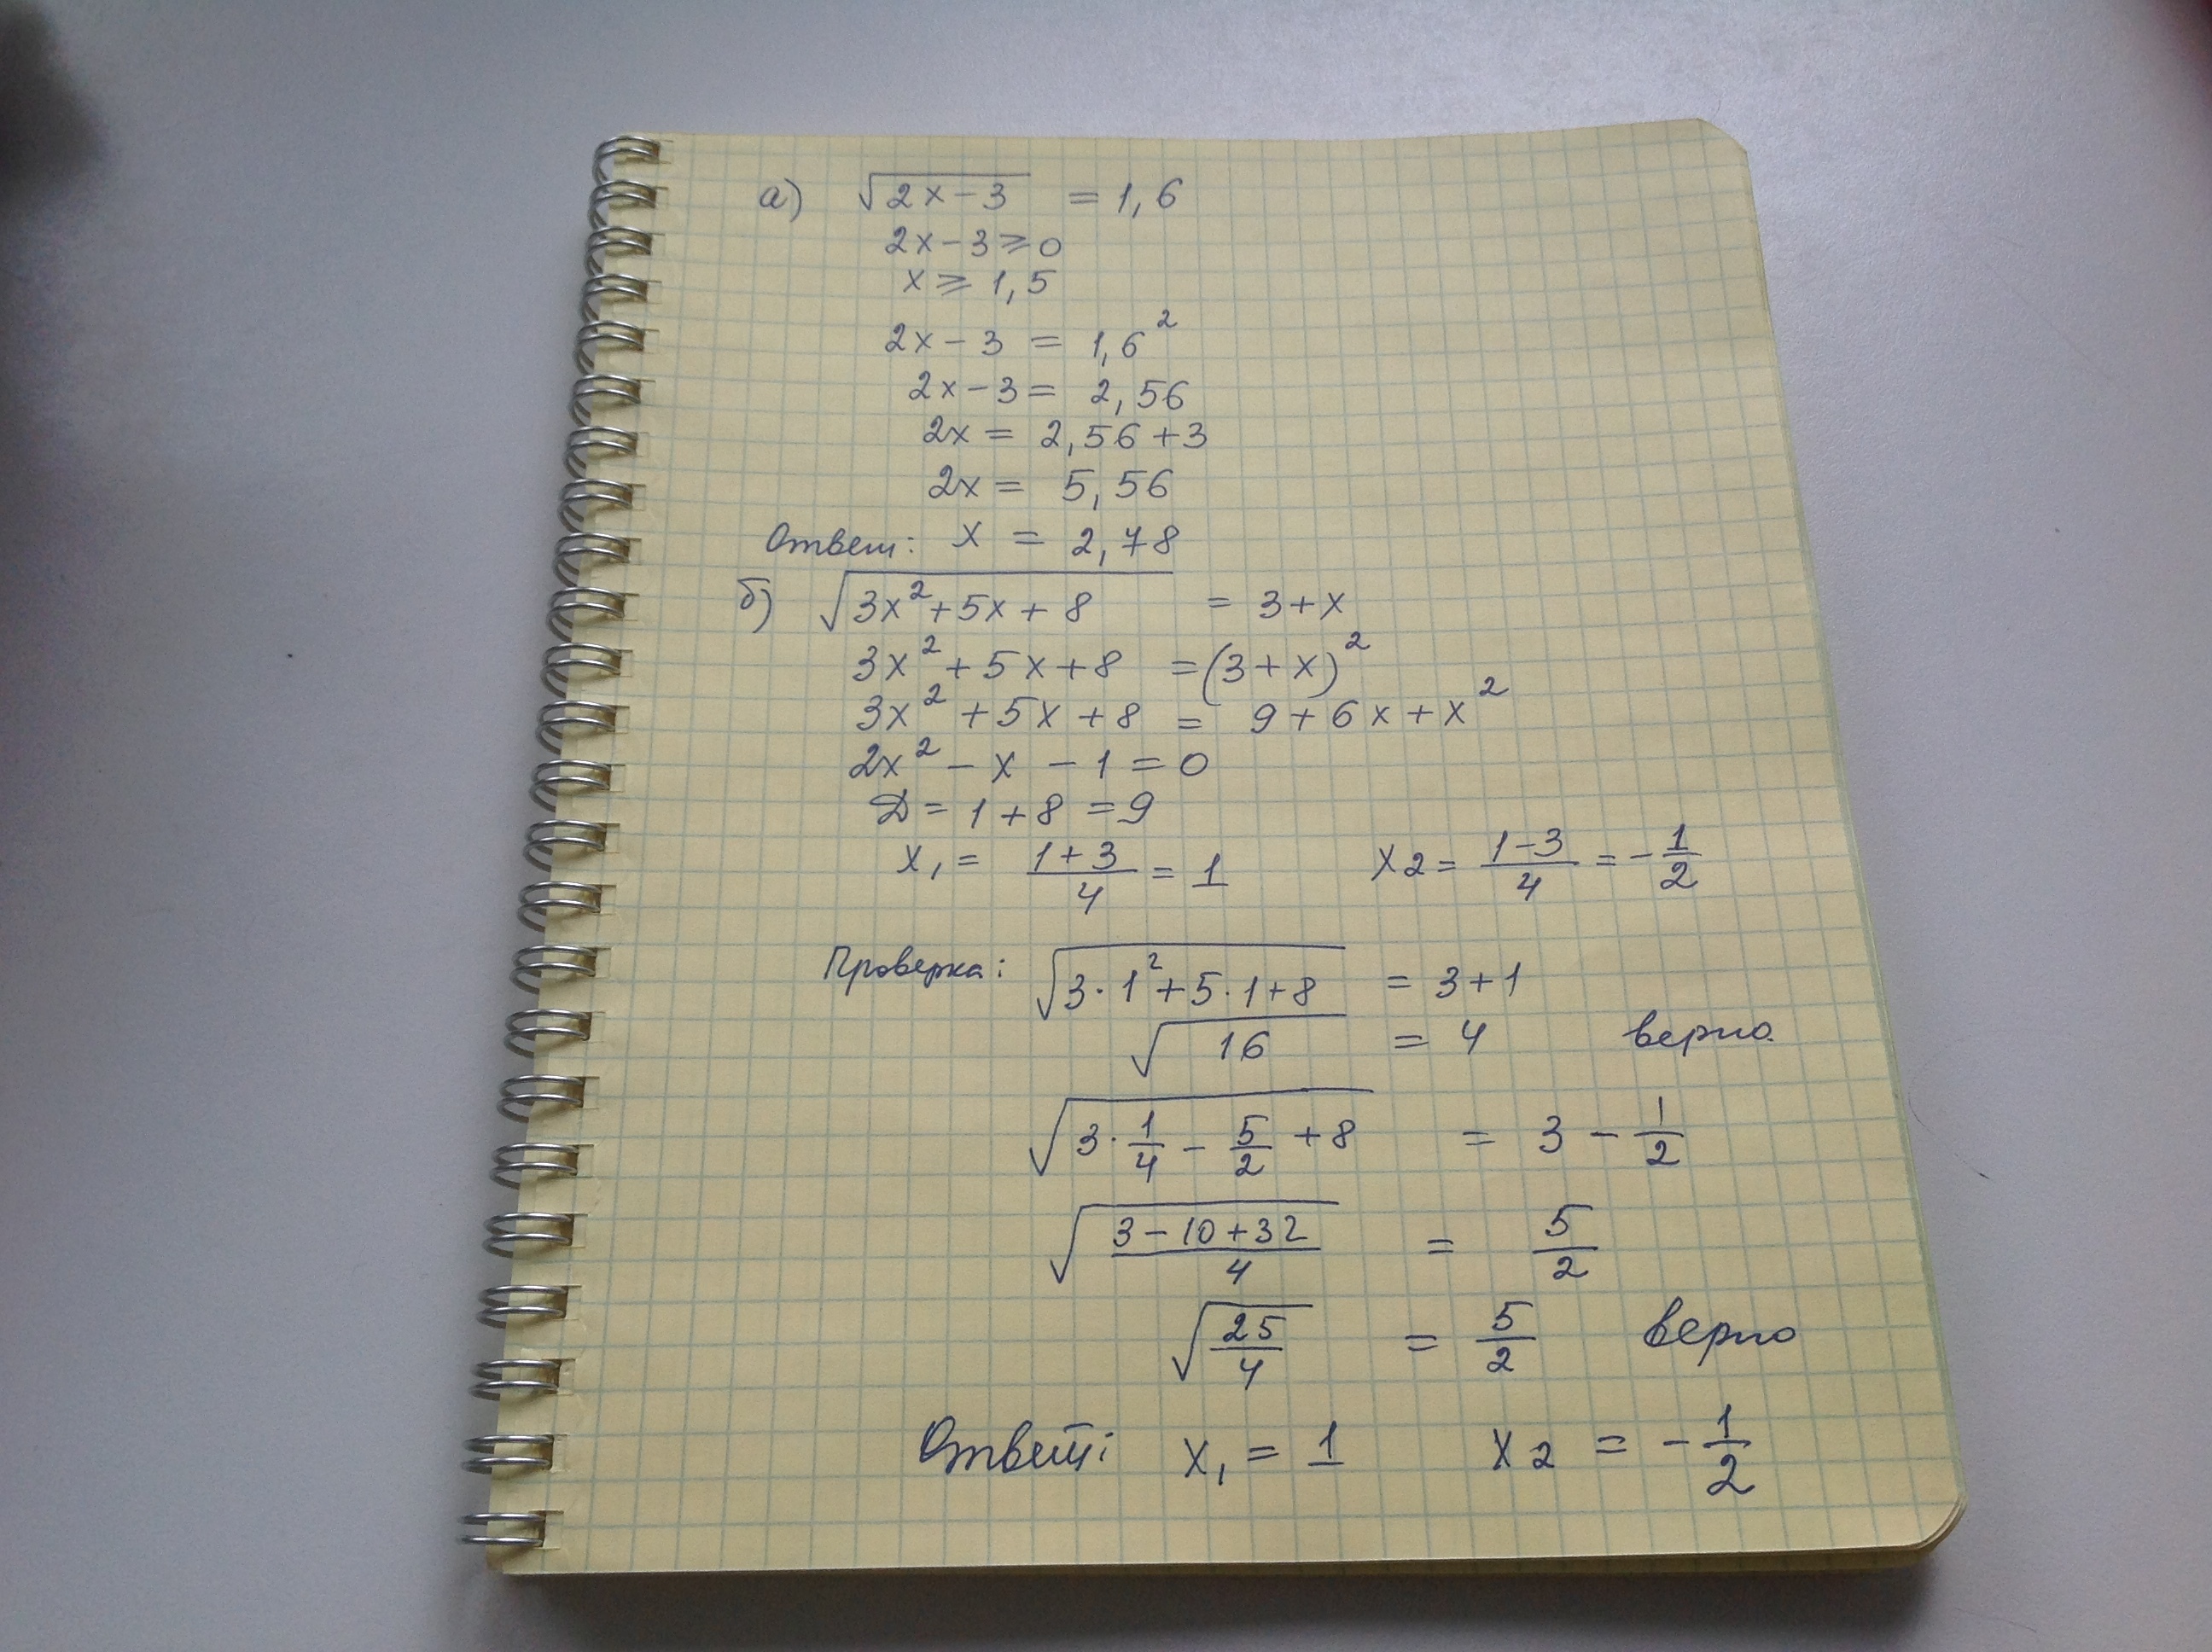 а) √(2x-3) = 1,6
2x-3 ⩾ 0
x ⩾ 1,5
2x-3 = 1,6²
2x-3 = 2,56
2x = 2,56+3
2x = 5,56
Ответ: x = 2,78
б) √(3x²+5x+8) = 3+x
3x²+5x+8 = (3+x)²
3x²+5x+8 = 9+6x+x²
2x²-x-1=0
Д = 1+8 = 9
x₁ = (1+3)/4 = 1 x₂ = (1-3)/4 = -1/2
Проверка: √(3·1²+5·1+8) = 3+1
√16 = 4 верно.
√(3·1/4 - 5/2 + 8) = 3 - 1/2
√((3-10+32)/4) = 5/2
√(25/4) = 5/2 верно
Ответ: x₁ = 1 x₂ = -1/2